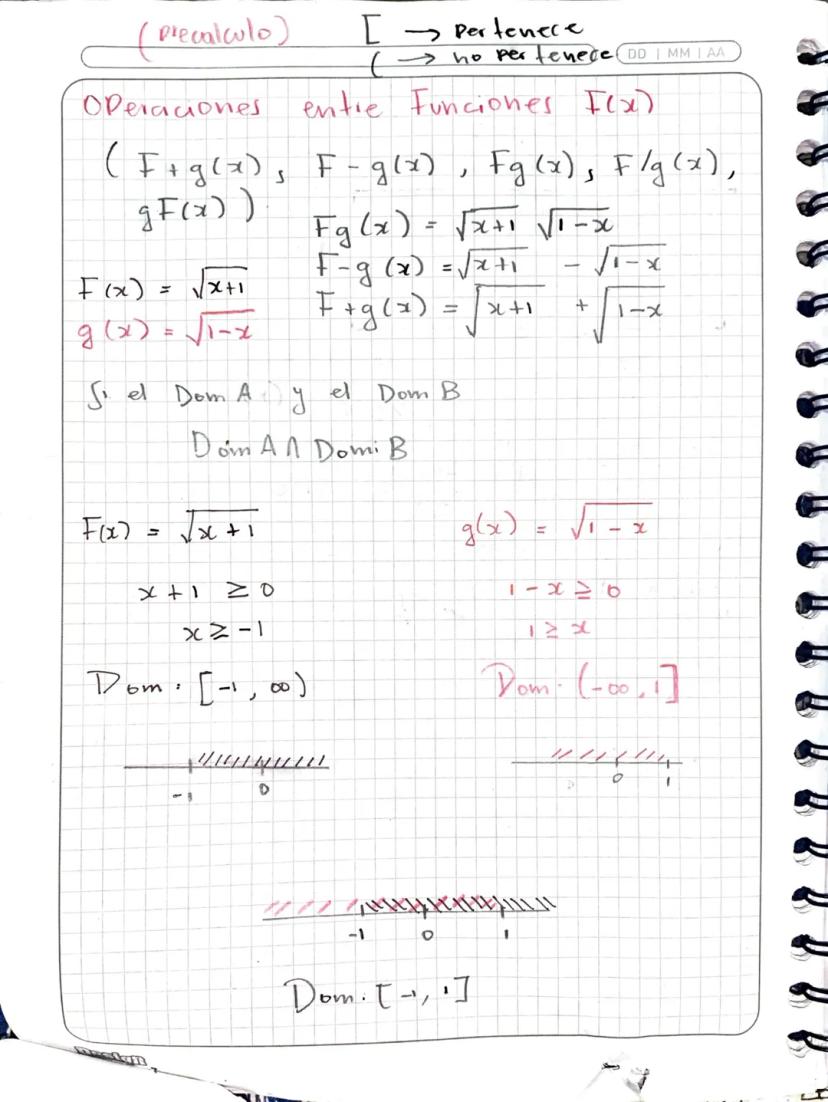 (precalculo) [ → pertenece
( → no pertenece DD | MM | AA
Operaciones entre Funciones F(x)
( F+g(x), F-g(x), Fg(x), F/g(x),
gF(x) )
Fg(x) = √x+1 √1-x
F-g(x) = √x+1 - √1-x
F(x) = √x+1
F+g(x) = √x+1 + √1-x
g(x) = √1-x
Si el Dom A y el Dom B
Dom A ∩ Domi B
F(x) = √x+1 g(x) = √1-x
x+1 ≥ 0 1-x ≥ 0
x ≥ -1 1 ≥ x
Dom: [-1, ∞) Dom: (-∞, 1]
-1 0 0 1
-1 0 1
Dom: [-1, 1]